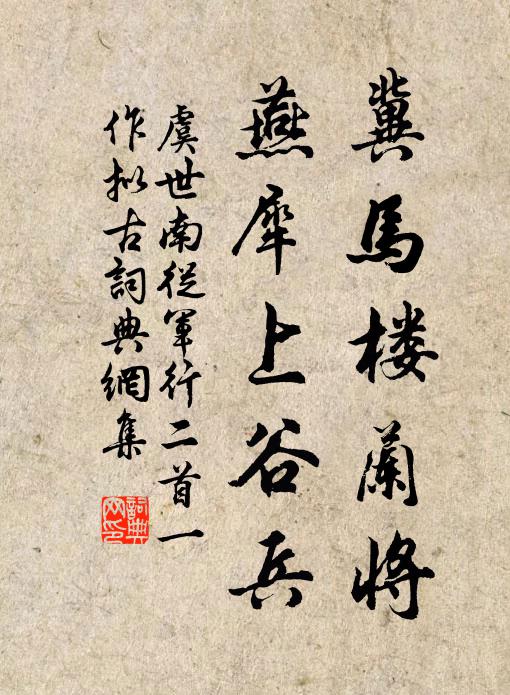 冀馬楼蘭将
燕犀上谷兵
虞世南從軍行二首一
作拟古詞典網集
詞典网印